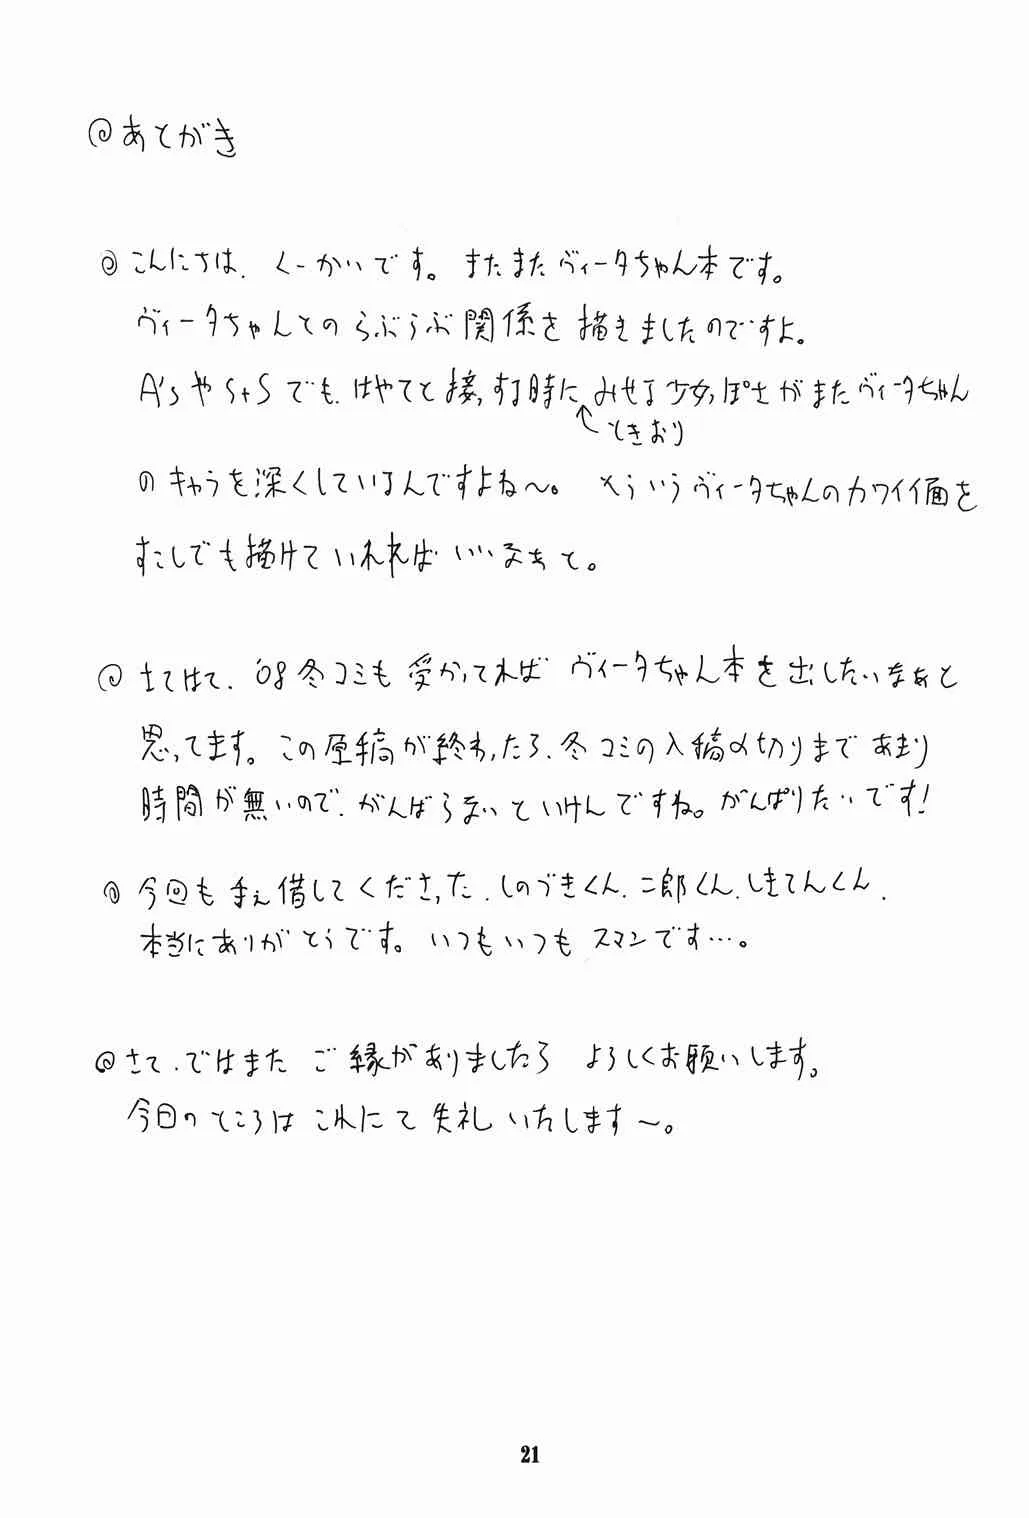 @あとがき
@こんにちは、くーかいです。またまたヴィータちゃん本です。
ヴィータちゃんとのらぶらぶ関係を描きましたのですよ。
A'sやStSでも、はやてと接する時に、みせる少女っぽさがまたヴィータちゃん
ときおり
のキャラを深くしているんですよね〜。そういうヴィータちゃんのカワイイ面を
すこしでも描けていれればいいなぁと。
@さてはて、'08冬コミも受かってればヴィータちゃん本を出したいなぁと
思ってます。この原稿が終わったら、冬コミの入稿〆切りまであまり
時間が無いので、がんばらないといけんですね。がんばりたいです!
@今回も手ぇ借してくださった、しのづきくん、二郎くん、しきてんくん、
本当にありがとうです。いつもいつもスマンです…。
@さて、ではまたご縁がありましたらよろしくお願いします。
今日のところはこれにて失礼いたします〜。
21